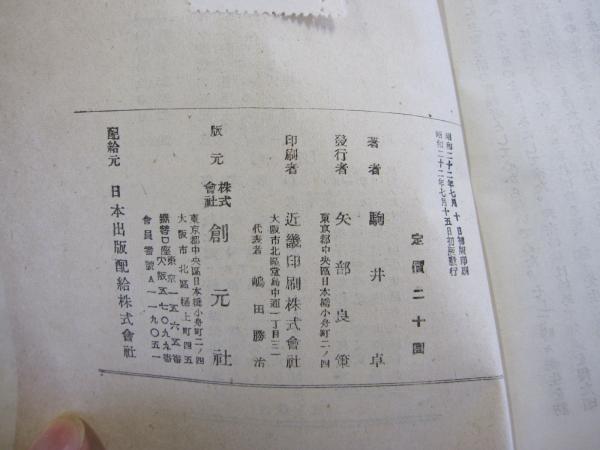 昭和二十二年七月十日初版印刷
昭和二十二年七月十五日初版發行
定價二十圓
著者 駒井卓
發行者 矢部良策
東京都中央區日本橋小舟町二ノ四
印刷者 近畿印刷株式會社
大阪市北區堂島中通一丁目三一
代表者 嶋田勝治
版元 株式會社 創元社
東京都中央區日本橋小舟町二ノ四
大阪市北區樋上町四五
振替口座 東京一五六五番
大阪五七〇九九番
會員番號A一一九〇五一
配給元 日本出版配給株式會社